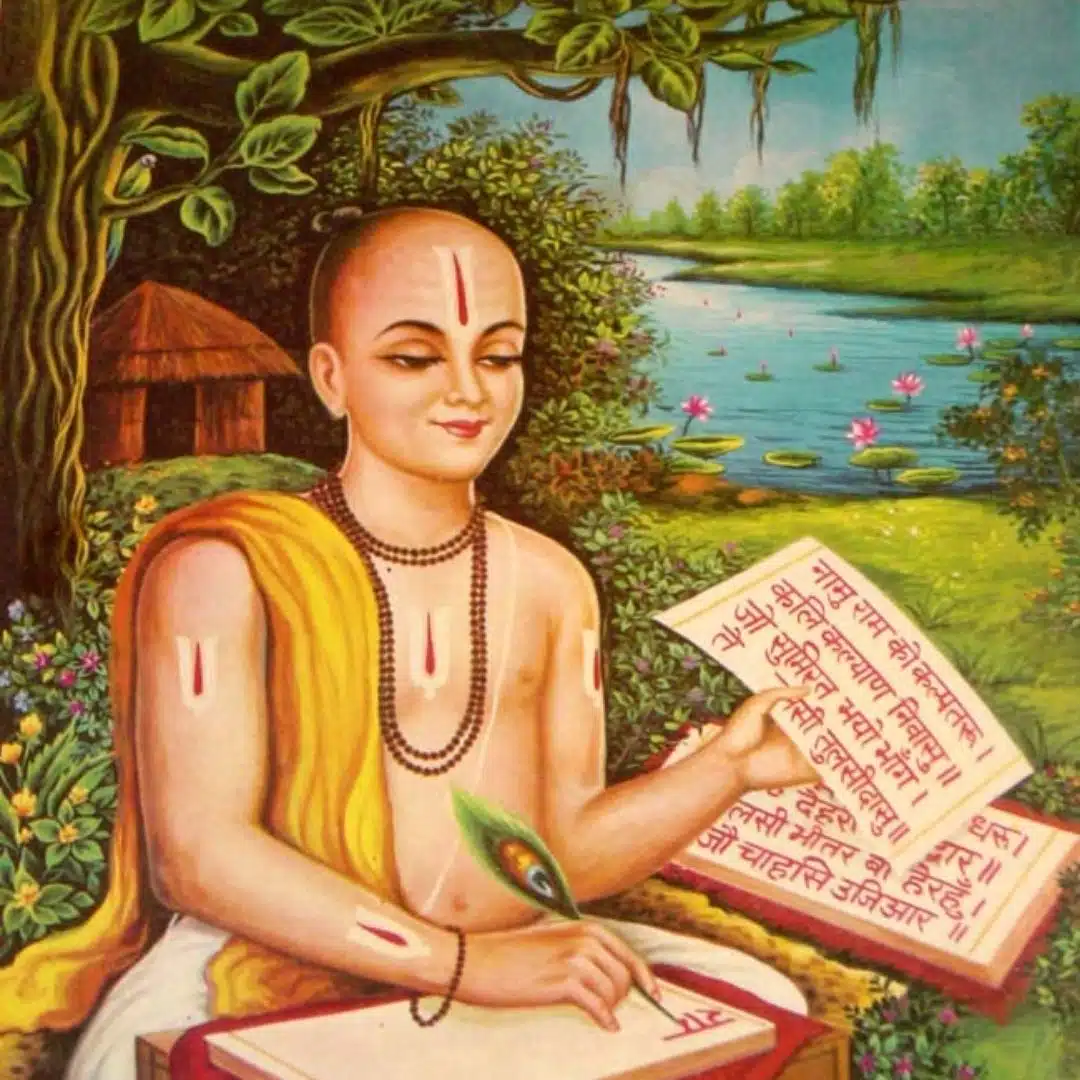 नामु राम को कल्पतरू ।
कलि कल्याण निवासु ॥
जो सुमिरत भयो भाँग ।
तै सी तुलसीदासु ॥
धरू ।
देहरी द्वार ॥
लसी भीतर बा हेरहुँ ।
जौ चाहासि उजिआर ॥